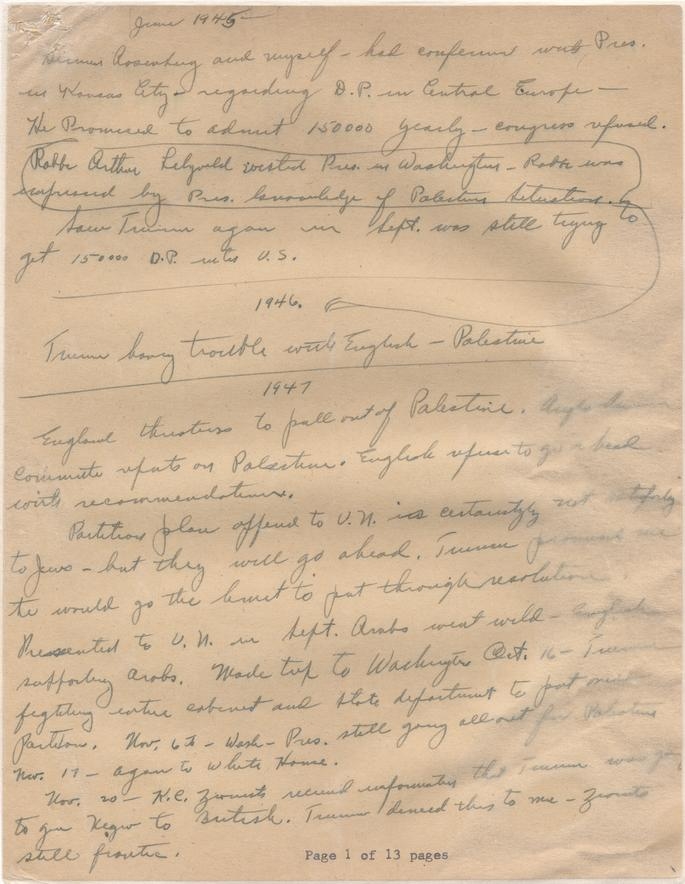 June 1945
Herman Rosenberg and myself - had conference with Pres.
in Kansas City - regarding D.P. in Central Europe -
He Promised to admit 150000 yearly - congress refused.
Rabbi Arthur Lelyveld visited Pres. in Washington - Rabbi was
impressed by Pres. knowledge of Palestine Situation.
Saw Truman again in Sept. was still trying to
get 150000 D.P. into U.S.
1946.
Truman having trouble with English - Palestine
1947
England threatens to pull out of Palestine. Anglo
Committe reports on Palestine. English refuse to go ahead
with recommendations.
Partition plan offered to U.N. is certaintly not satisfactory
to Jews - but they will go ahead. Truman promised me
he would go the limit to put through resolution
Presented to U.N. in Sept. Arabs went wild - English
supporting Arabs. Made trip to Washington Oct. 16 - Truman
fighting entire cabinet and State department to put over
Partition. Nov. 6th - Wash - Pres. still going all out for Palestine
Nov. 17 - again to White House.
Nov. 20 - K.C. Zionists received information that Truman was
to give Negev to British. Truman denied this to me - Zionists
still frantic.
Page 1 of 13 pages